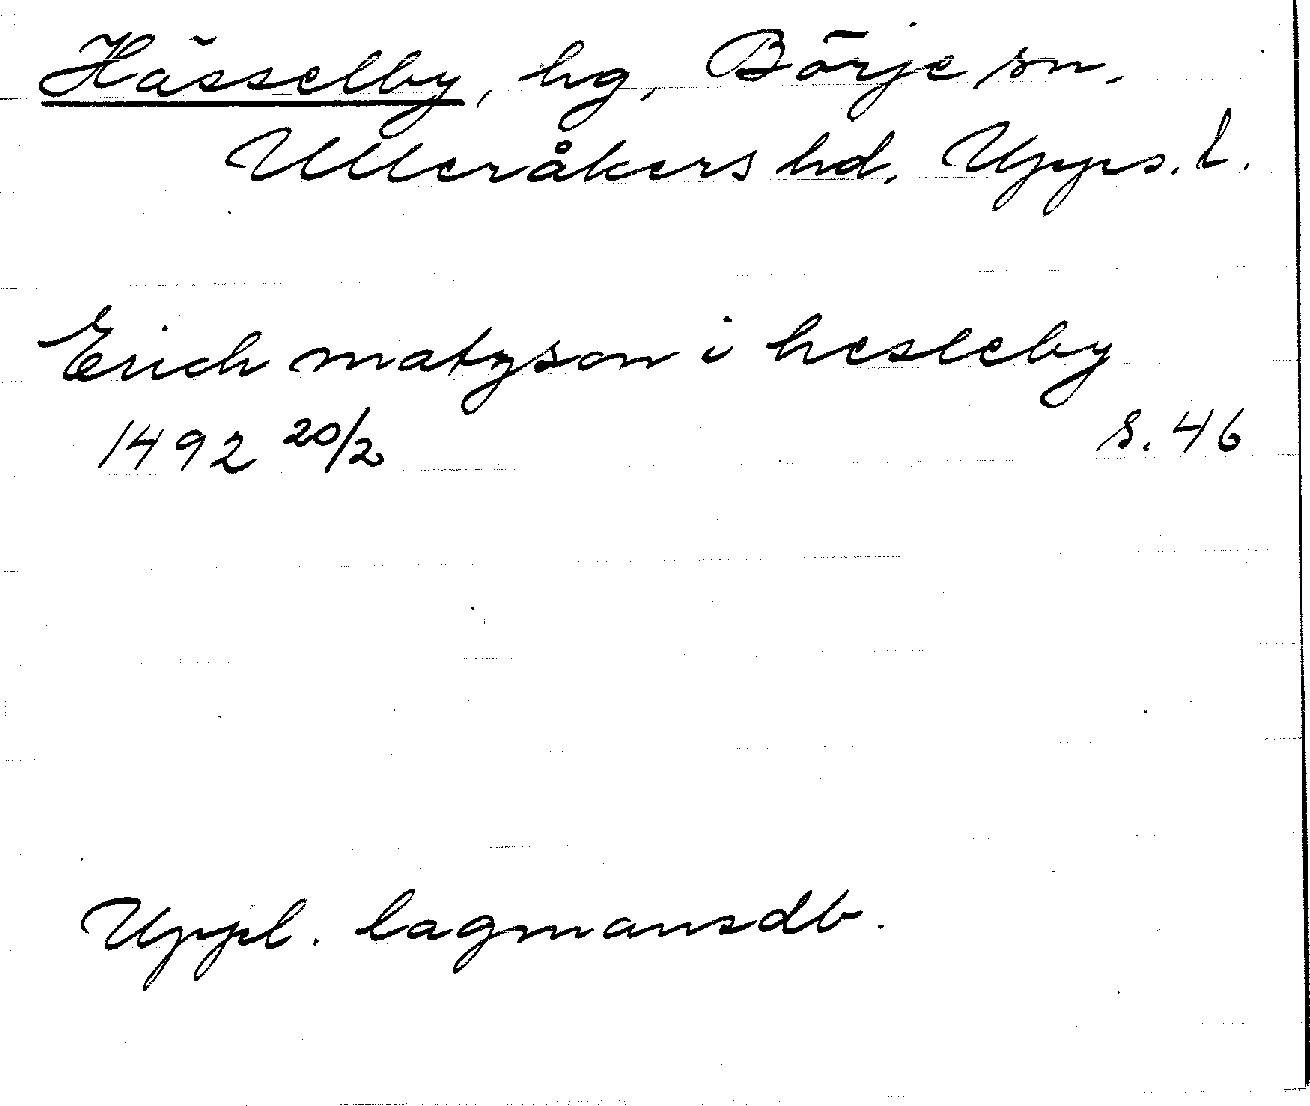 Hässelby, hg, Börje sn.
Ulleråkers hd. Upps. l.
Erich matzson i hesleby
1492 20/2 s. 46
Uppl. lagmansdb.